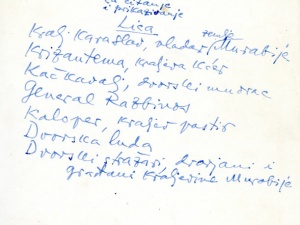 za čitanje
i prikazivanje
Lica
Kralj Karaslad, vladar zemlje Murabije
Krizantema, kraljeva kćer
Kačkavalj, dvorski mudrac
General Razbinos
Kaloper, kraljev pastir
Dvorska luda
Dvorski stražari, dvorjani i
građani Kraljevine Murabije